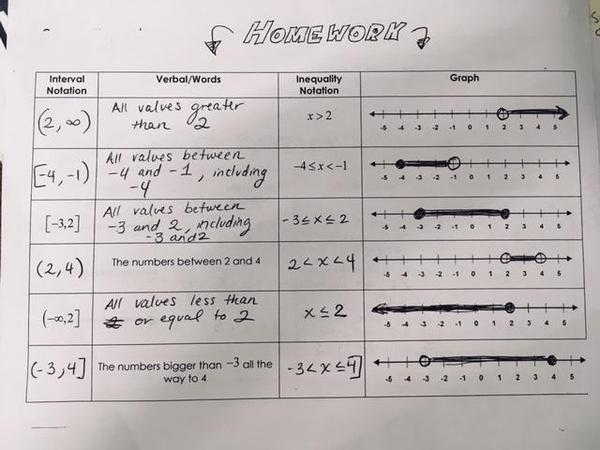 HOMEWORK
Interval Notation Verbal/Words Inequality Notation Graph
(2, ∞) All values greater than 2 x > 2
-5 -4 -3 -2 -1 0 1 2 3 4 5
[-4, -1) All values between -4 and -1, including -4 -4≤x<-1
-5 -4 -3 -2 -1 0 1 2 3 4 5
[-3,2] All values between -3 and 2, including -3 and 2 -3≤x≤2
-5 -4 -3 -2 -1 0 1 2 3 4 5
(2,4) The numbers between 2 and 4 2<x<4
-5 -4 -3 -2 -1 0 1 2 3 4 5
(-∞,2] All values less than or equal to 2 x≤2
-5 -4 -3 -2 -1 0 1 2 3 4 5
(-3,4] The numbers bigger than -3 all the way to 4 -3<x≤4]
-5 -4 -3 -2 -1 0 1 2 3 4 5